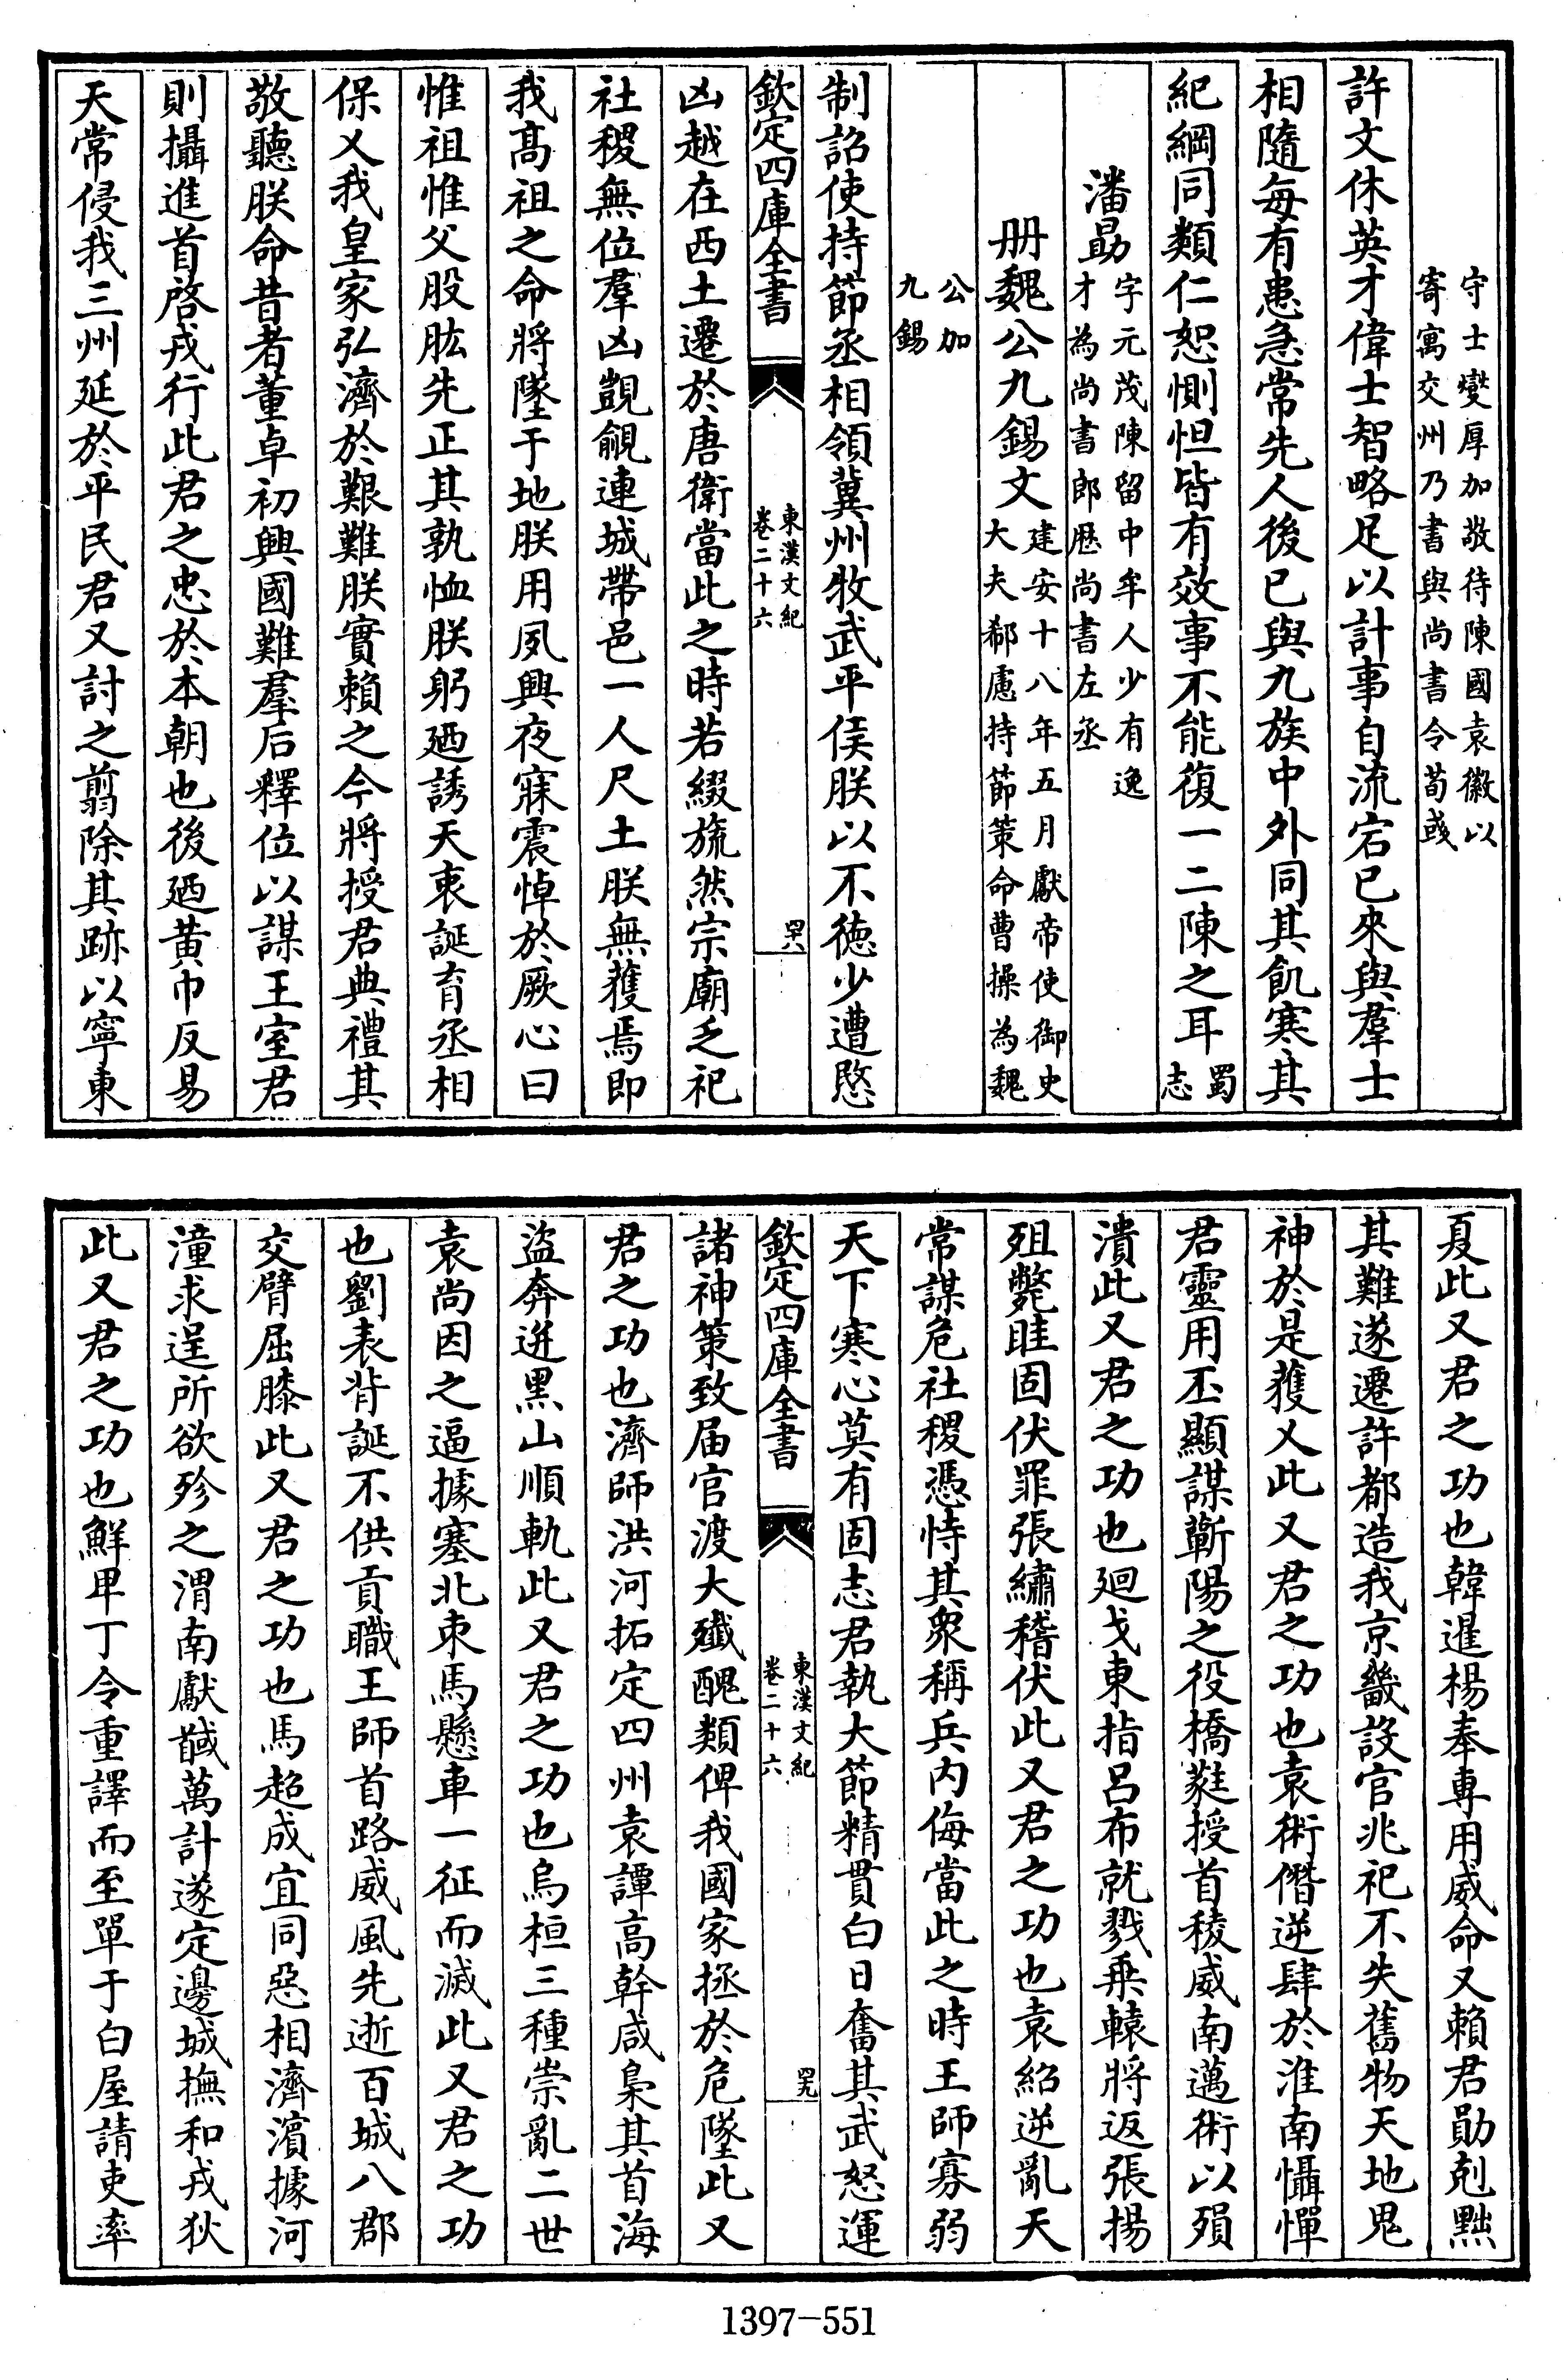 守士燮厚加敬待陳國袁徽以
寄寓交州乃書與尚書令荀彧
許文休英才偉士智略足以計事自流宕已來與羣士
相隨每有患急常先人後已與九族中外同其飢寒其
紀綱同類仁恕惻怛皆有效事不能復一二陳之耳蜀志
潘勗字元茂陳留中牟人少有逸
才為尚書郎歴尚書左丞
册魏公九錫文建安十八年五月獻帝使御史
大夫郗慮持節策命曹操為魏
公加
九錫
制詔使持節丞相領冀州牧武平侯朕以不徳少遭愍
欽定四庫全書
東漢文紀
卷二十六
四十八
凶越在西土遷於唐衛當此之時若綴旒然宗廟乏祀
社稷無位羣凶覬覦連城帶邑一人尺土朕無獲焉即
我髙祖之命將墜于地朕用夙興夜寐震悼於厥心曰
惟祖惟父股肱先正其孰恤朕躬廼誘天衷誕育丞相
保乂我皇家弘濟於艱難朕實賴之今將授君典禮其
敬聽朕命昔者董卓初興國難羣后釋位以謀王室君
則攝進首啓戎行此君之忠於本朝也後廼黄巾反易
天常侵我三州延於平民君又討之翦除其跡以寧東
夏此又君之功也韓暹楊奉専用威命又賴君勛剋黜
其難遂遷許都造我京畿設官兆祀不失舊物天地鬼
神於是獲乂此又君之功也袁術僭逆肆於淮南懾憚
君靈用丕顯謀蘄陽之役橋蕤授首稜威南邁術以殞
潰此又君之功也廻戈東指呂布就戮乗轅將返張揚
殂斃眭固伏罪張繡稽伏此又君之功也袁紹逆亂天
常謀危社稷憑恃其衆稱兵内侮當此之時王師寡弱
天下寒心莫有固志君執大節精貫白日奮其武怒運
欽定四庫全書
東漢文紀
卷二十六
四十九
諸神策致届官渡大殲醜類俾我國家拯於危墜此又
君之功也濟師洪河拓定四州袁譚高幹咸梟其首海
盜奔迸黒山順軌此又君之功也烏桓三種崇亂二世
袁尚因之逼據塞北束馬懸車一征而滅此又君之功
也劉表背誕不供貢職王師首路威風先逝百城八郡
交臂屈膝此又君之功也馬超成宜同惡相濟濵據河
潼求逞所欲殄之渭南獻馘萬計遂定邊城撫和戎狄
此又君之功也鮮卑丁令重譯而至單于白屋請吏率
1397-551